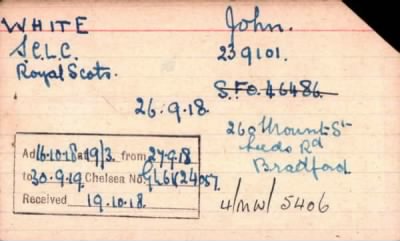 WHITE
John.
S.C.L.C.
239101.
Royal Scots.
S.F.O. 46486.
26.9.18.
260 Mount St
Leeds Rd
Bradford
Ad 16.10.18 at 19/3. from 27.9.18
to 30.9.19. Chelsea No.
Received 19.10.18.
4/MW/5406